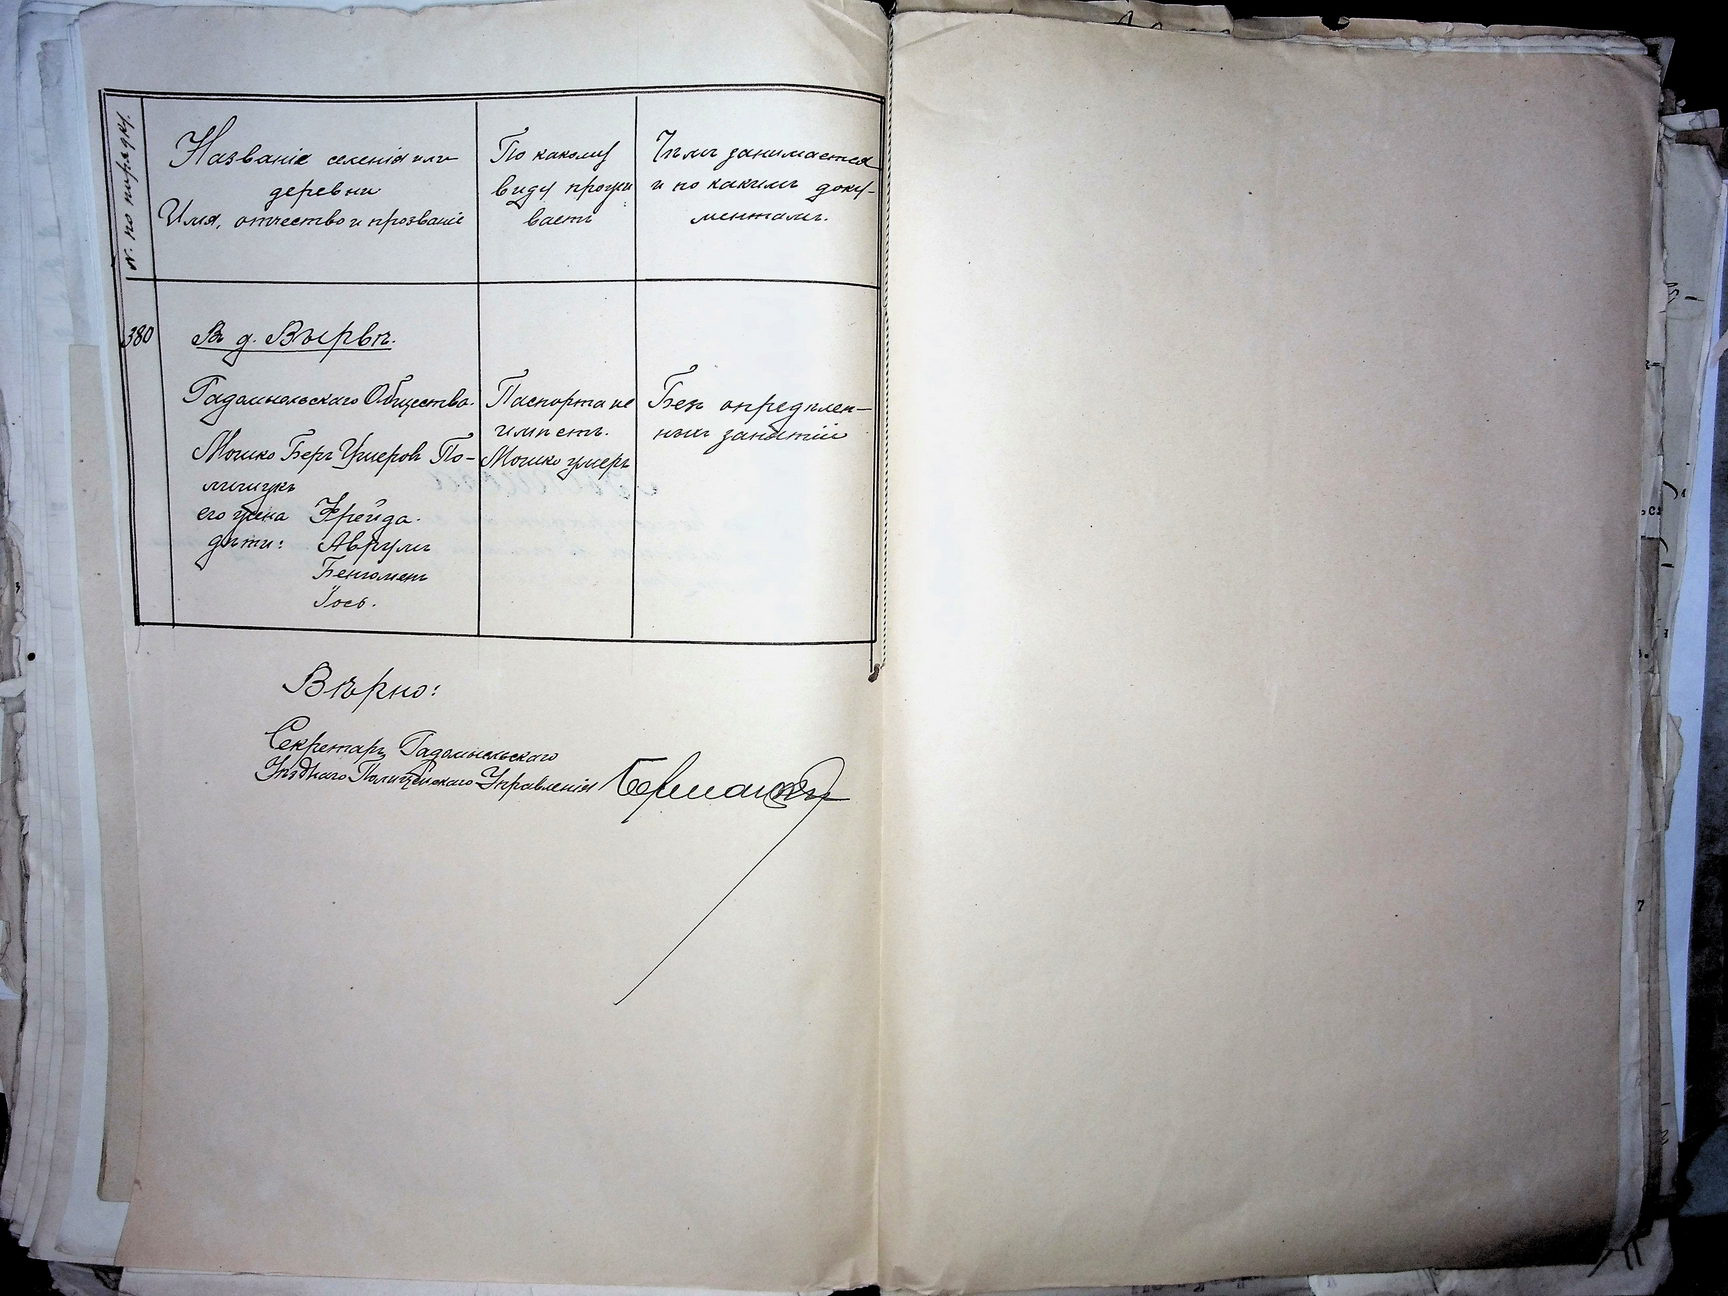 № по порядку.
Названіе селенія или
деревни
Имя, отчество и прозваніе
По какому
виду прожи
ваетъ
Чѣмъ занимается
и по какимъ доку-
ментамъ.
380
Въ д. Вырвѣ.
Радомысльскаго Общества.
Мошко Беръ Умеровъ По-
лищукъ
его жена Фрейда.
дѣти: Аврумъ
Бенгоменъ
Іось.
Паспорта не
имѣетъ.
Мошко умеръ
Безъ опредѣлен-
ныхъ занятій
Вѣрно:
Секретарь Радомысльскаго
Уѣзднаго Полицейскаго Управленія